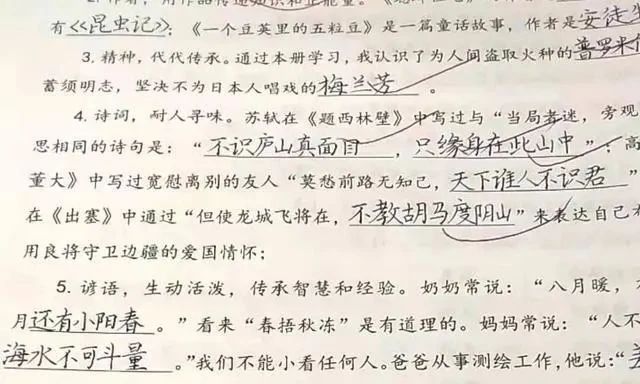 有《昆虫记》；《一个豆荚里的五粒豆》是一篇童话故事，作者是安徒
3. 精神，代代传承。通过本册学习，我认识了为人间盗取火种的普罗米
蓄须明志，坚决不为日本人唱戏的梅兰芳。
4. 诗词，耐人寻味。苏轼在《题西林壁》中写过与“当局者迷，旁观
思相同的诗句是：“不识庐山真面目，只缘身在此山中”；高
董大》中写过宽慰离别的友人“莫愁前路无知己，天下谁人不识君”
在《出塞》中通过“但使龙城飞将在，不教胡马度阴山”来表达自己
用良将守卫边疆的爱国情怀；
5. 谚语，生动活泼，传承智慧和经验。奶奶常说：“八月暖，
月还有小阳春。”看来“春捂秋冻”是有道理的。妈妈常说：“人不
海水不可斗量。”我们不能小看任何人。爸爸从事测绘工作，他说：“